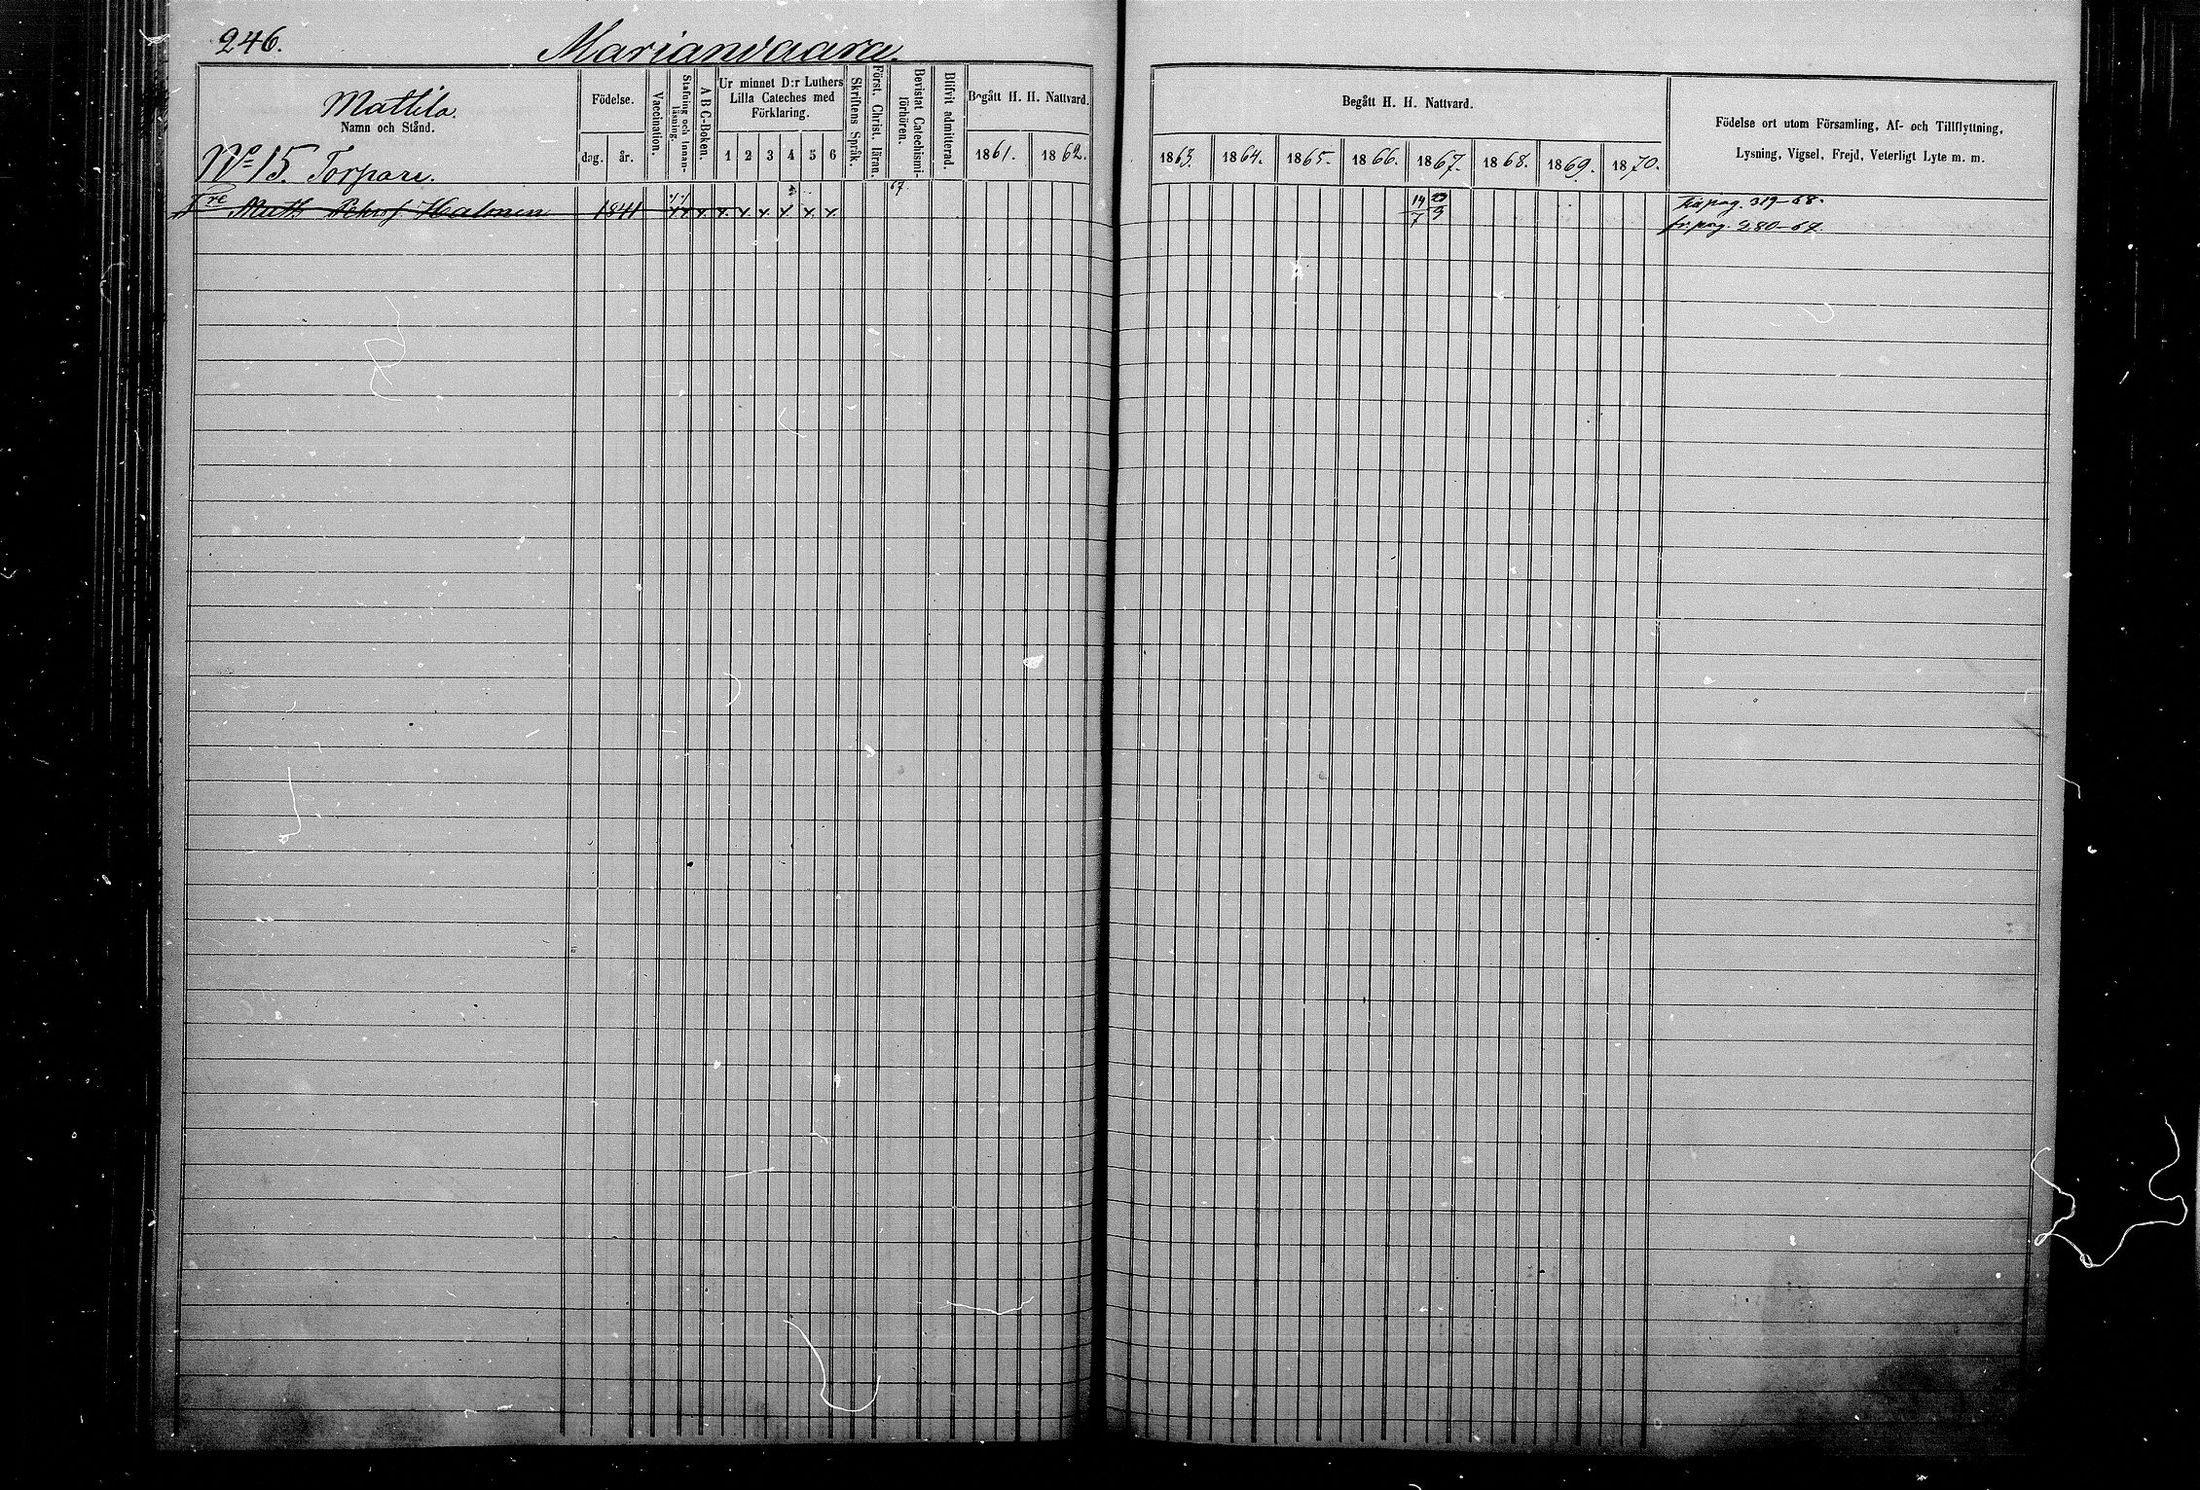 246.
Marianvaara.
Mattila.
Namn och Stånd.
Födelse.
dag. år.
Vaccination.
Stafning och Innan-läsning.
A B C-Boken.
Ur minnet D:r Luthers
Lilla Cateches med
Förklaring.
1 2 3 4 5 6
Skriftens Språk.
Först. Christ. läran.
Bevistat Catechismi-förhören.
Blifvit admitterad.
Begått H. H. Nattvard.
1861. 1862.
Begått H. H. Nattvard.
1863. 1864. 1865. 1866. 1867. 1868. 1869. 1870.
Födelse ort utom Församling, Af- och Tillflyttning,
Lysning, Vigsel, Frejd, Veterligt Lyte m. m.
No 15. Torpare.
Math Halonen 1841 67. 14/7
pag. 319-68.
fr. pag. 280-67.